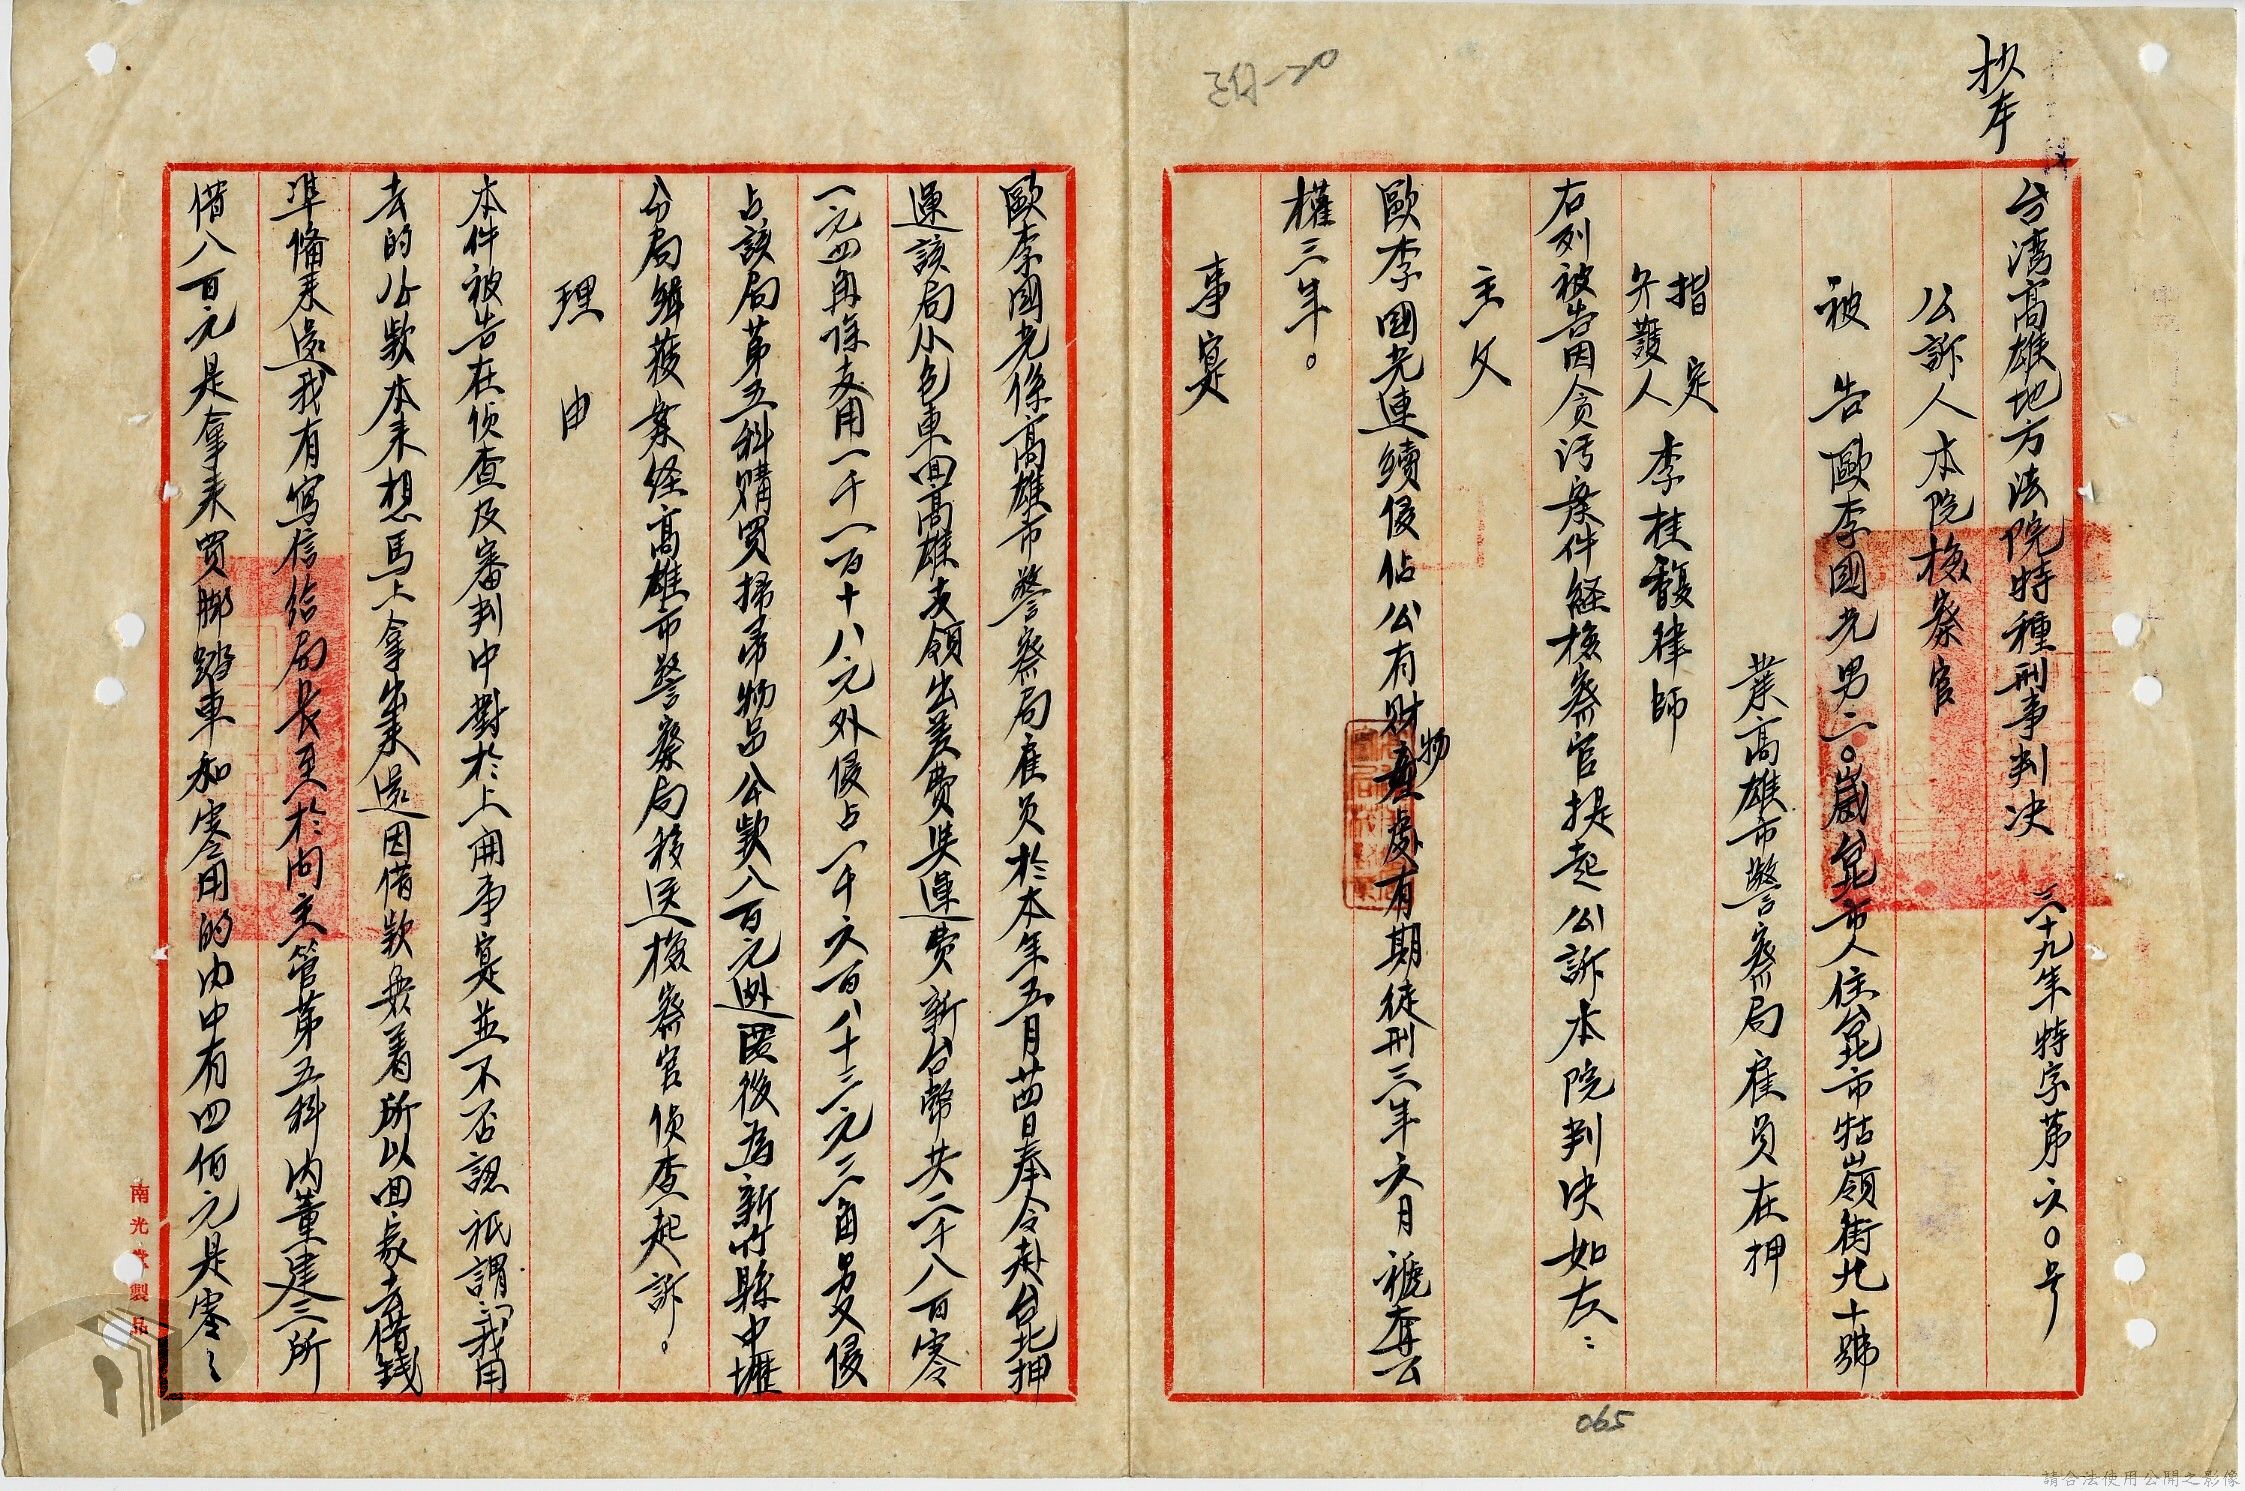 抄本
台湾高雄地方法院特種刑事判决 三十九年特字第六〇号
公訴人本院檢察官
被告歐李國光男二〇歲台北市人住台北市牯嶺街九十號
業高雄市警察局雇員在押
指定
弁護人李桂馥律師
右列被告因贪污案件経檢察官提起公訴本院判决如左：
主文
歐李國光連續侵佔公有财物處有期徒刑三年六月褫奪公
權三年。
事寔
歐李國光係高雄市警察局雇員於本年五月廿四日奉令赴台北押
運該局小包車回高雄支領出差費與運費新台幣共二千八百零
一元四角除支用一千一百十八元外侵占一千六百八十三元三角另又侵
占該局第五科購買掃帚物品公款八百元逃匿後為新竹縣中壢
分局緝获案经高雄市警察局移送檢察官侦查起訴。
理由
本件被告在侦查及審判中對於上開事寔並不否認祇謂「我用
去的公款本来想馬上拿出来還因借款無着所以回家去借錢
準備来還我有寫信给局長至於向主管第五科內董建三所
借八百元是拿来買脚踏車和零用的内中有四佰元是零〻
三月-20
065
南光 製品
請合法使用公開之影像